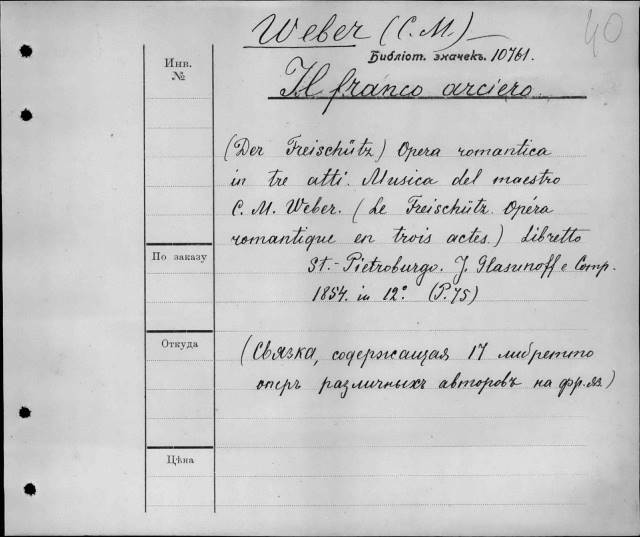 40
Weber (C. M.) —
Библіот. значекъ. 10761.
Инв.
№
Il franco arciero.
(Der Freischütz) Opera romantica
in tre atti. Musica del maestro
C. M. Weber. (Le Freischütz. Opéra
romantique en trois actes.) Libretto
По заказу
St.-Pietroburgo. J. Glasunoff e Comp.
1854. in 12° (P. 75)
Откуда
(Связка, содержащая 17 либретто
оперъ различныхъ авторовъ на фр. яз.)
Цѣна